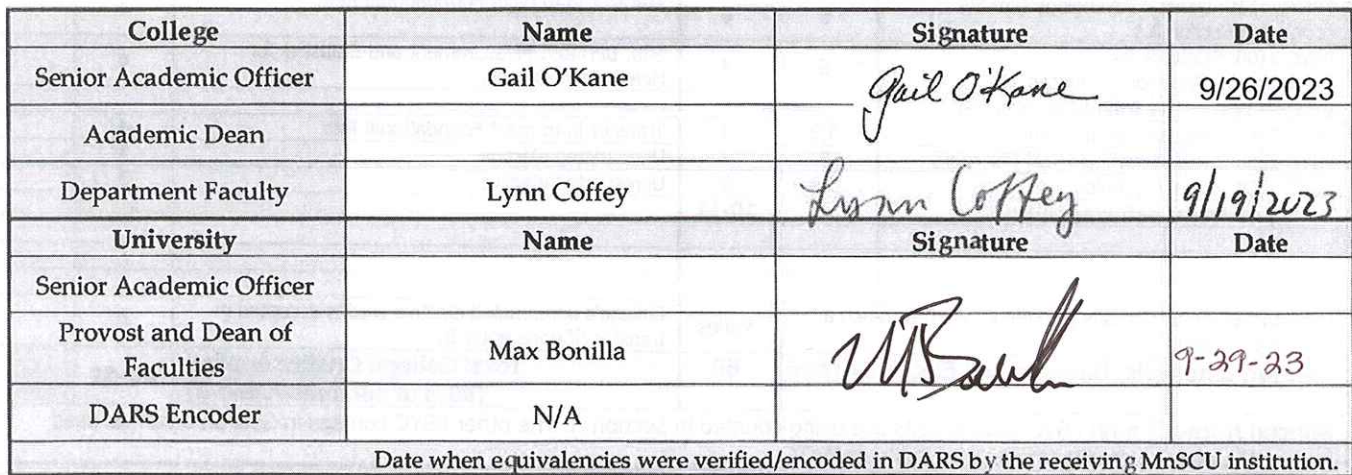 College Name Signature Date
Senior Academic Officer Gail O'Kane Gail O'Kane 9/26/2023
Academic Dean
Department Faculty Lynn Coffey Lynn Coffey 9/19/2023
University Name Signature Date
Senior Academic Officer
Provost and Dean of
Faculties Max Bonilla 9-29-23
DARS Encoder N/A
Date when equivalencies were verified/encoded in DARS by the receiving MnSCU institution.